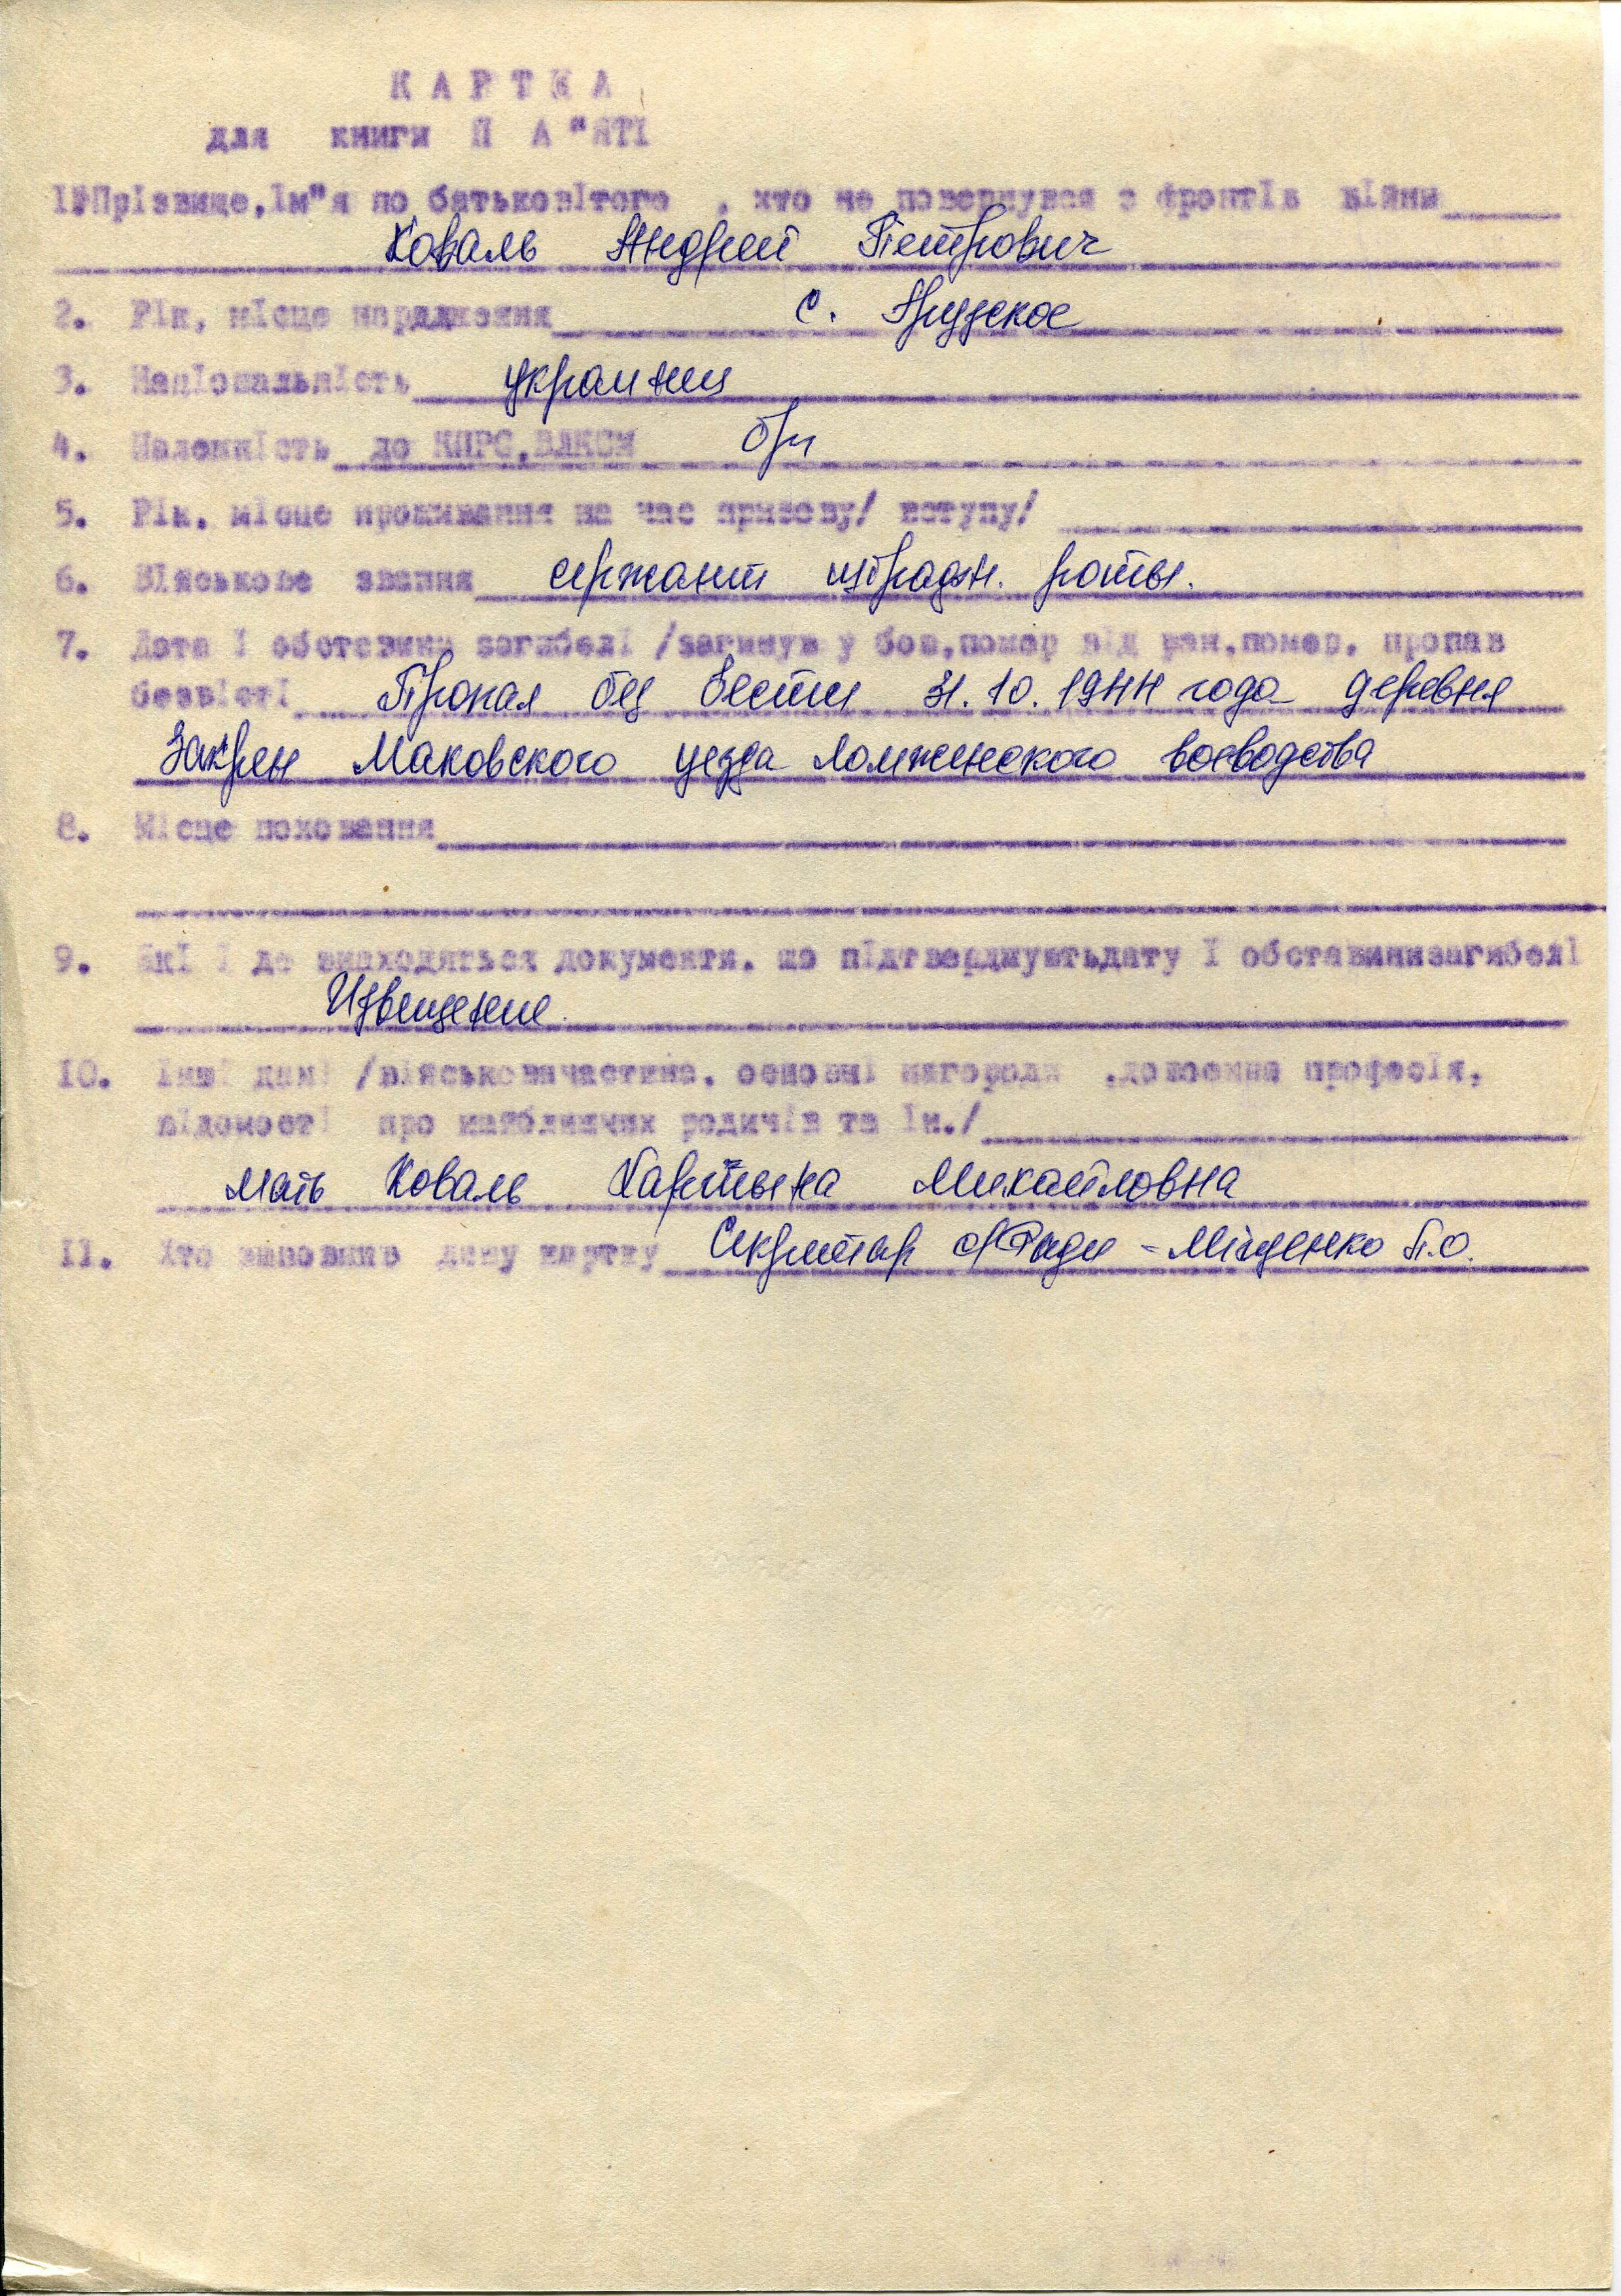 К А Р Т К А
для книги П А "ЯТІ
1. Прізвище, ім"я по батьковітого , хто не повернувся з фронтів війни
Коваль Андрей Петрович
2. Рік, місце народження с.
3. Національність украинец
4. Належність до КПРС, ВЛКСМ б/п
5. Рік, місце проживання на час призову/ вступу/
6. Військове звання сержант штрафн. роты.
7. Дата і обставини загибелі /загинув у бою, помер від ран, помер, пропав
безвісті Пропал без вести 31.10.1944 года деревня
Закрен Маковского уезда Ломженского воеводства
8. Місце поховання
9. Які і де знаходяться документи, що підтверджуютьдату і обставинизагибелі
Извещение.
10. Інші дані /військовачастина, основні нагороди ,довоєнна професія,
відомості про найближчих родичів та ін./
мать Коваль Михайловна
11. Хто заповнив дану картку Секретар с/Ради - Міщенко П.О.